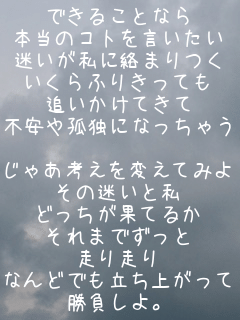 できることなら
本当のコトを言いたい
迷いが私に絡まりつく
いくらふりきっても
追いかけてきて
不安や孤独になっちゃう
じゃあ考えを変えてみよ
その迷いと私
どっちが果てるか
それまでずっと
走り走り
なんどでも立ち上がって
勝負しよ。